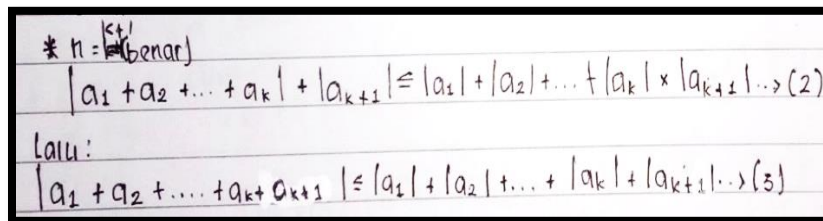 * n = k+1 (benar)
|a₁ + a₂ + ... + aₖ| + |aₖ₊₁| ≤ |a₁| + |a₂| + ... + |aₖ| × |aₖ₊₁| ..→ (2)
Lalu :
|a₁ + a₂ + .... + aₖ + aₖ₊₁ | ≤ |a₁| + |a₂| + ... + |aₖ| + |aₖ₊₁| ..→ (3)